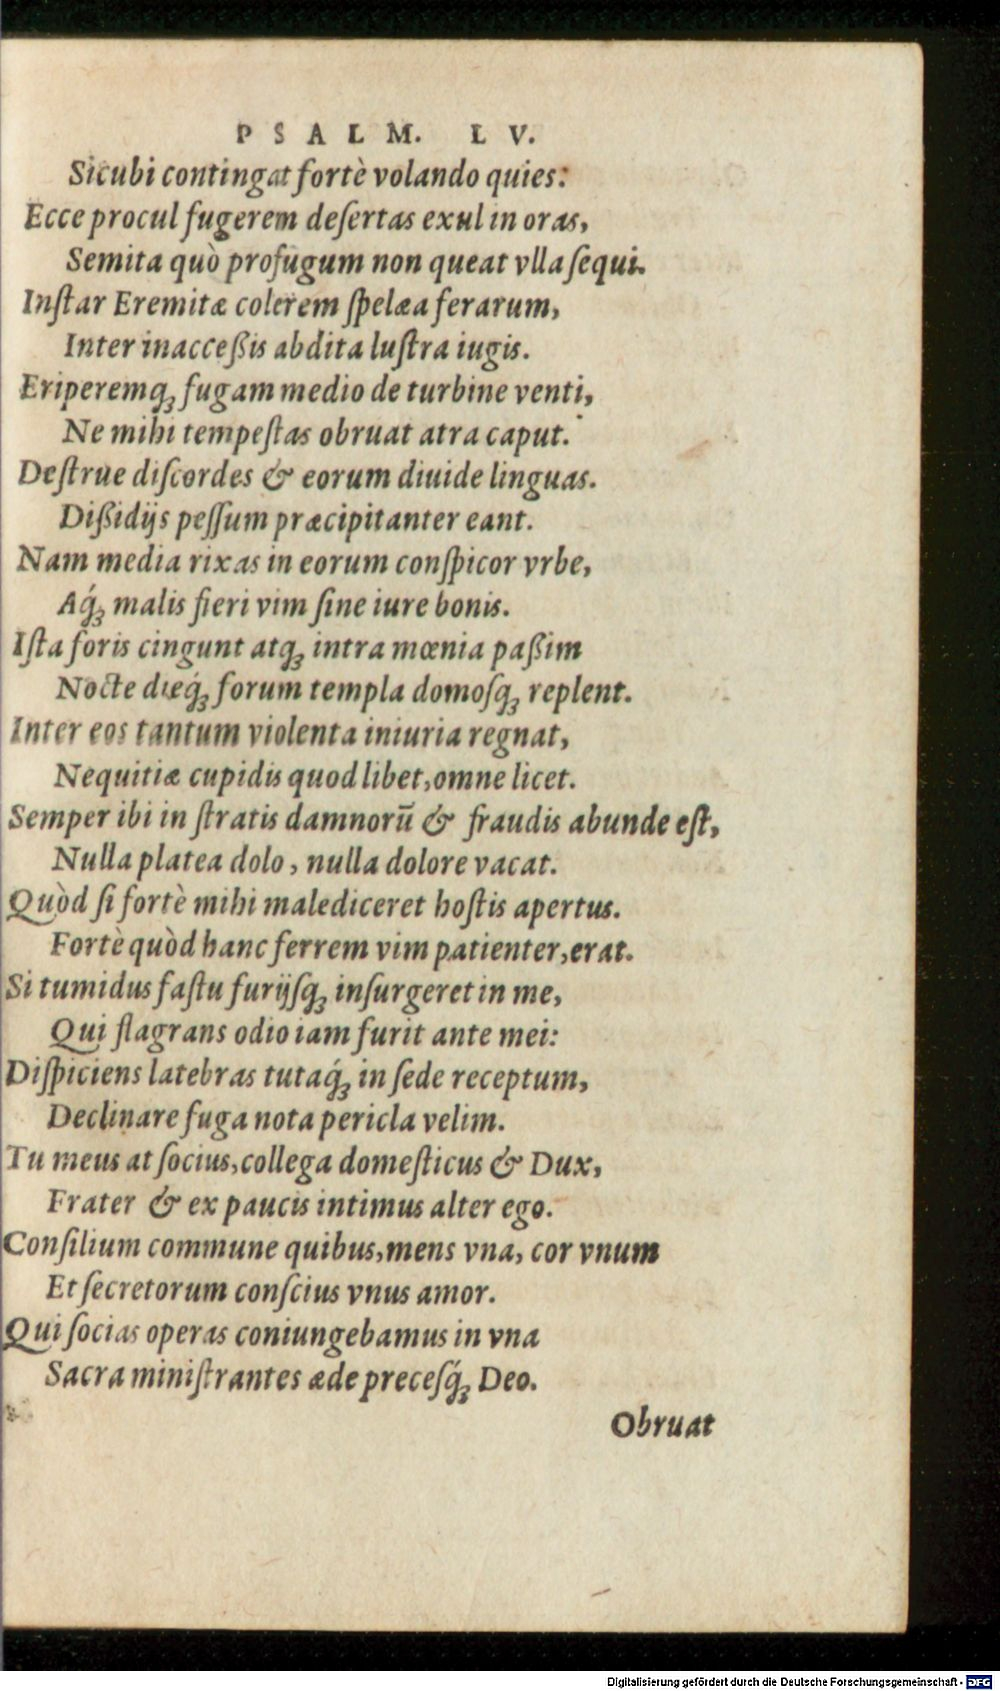 PSALM. LV.
Sicubi contingat fortè volando quies:
Ecce procul fugerem deſertas exul in oras,
Semita quò profugum non queat vlla ſequi.
Inſtar Eremitæ colerem ſpelæa ferarum,
Inter inacceßis abdita luſtra iugis.
Eriperemq́; fugam medio de turbine venti,
Ne mihi tempeſtas obruat atra caput.
Deſtrue diſcordes & eorum diuide linguas.
Dißidijs peſſum præcipitanter eant.
Nam media rixas in eorum conſpicor vrbe,
Aq́; malis fieri vim ſine iure bonis.
Iſta foris cingunt atq; intra mœnia paßim
Nocte dieq́; forum templa domoſq; replent.
Inter eos tantum violenta iniuria regnat,
Nequitiæ cupidis quod libet, omne licet.
Semper ibi in ſtratis damnorū & fraudis abunde eſt,
Nulla platea dolo, nulla dolore vacat.
Quòd ſi fortè mihi malediceret hoſtis apertus.
Fortè quòd hanc ferrem vim patienter, erat.
Si tumidus faſtu furijſq; inſurgeret in me,
Qui flagrans odio iam furit ante mei:
Diſpiciens latebras tutaq́; in ſede receptum,
Declinare fuga nota pericla velim.
Tu meus at ſocius, collega domeſticus & Dux,
Frater & ex paucis intimus alter ego.
Conſilium commune quibus, mens vna, cor vnum
Et ſecretorum conſcius vnus amor.
Qui ſocias operas coniungebamus in vna
Sacra miniſtrantes æde preceſq́; Deo.
Obruat
Digitalisierung gefördert durch die Deutsche Forschungsgemeinschaft - DFG